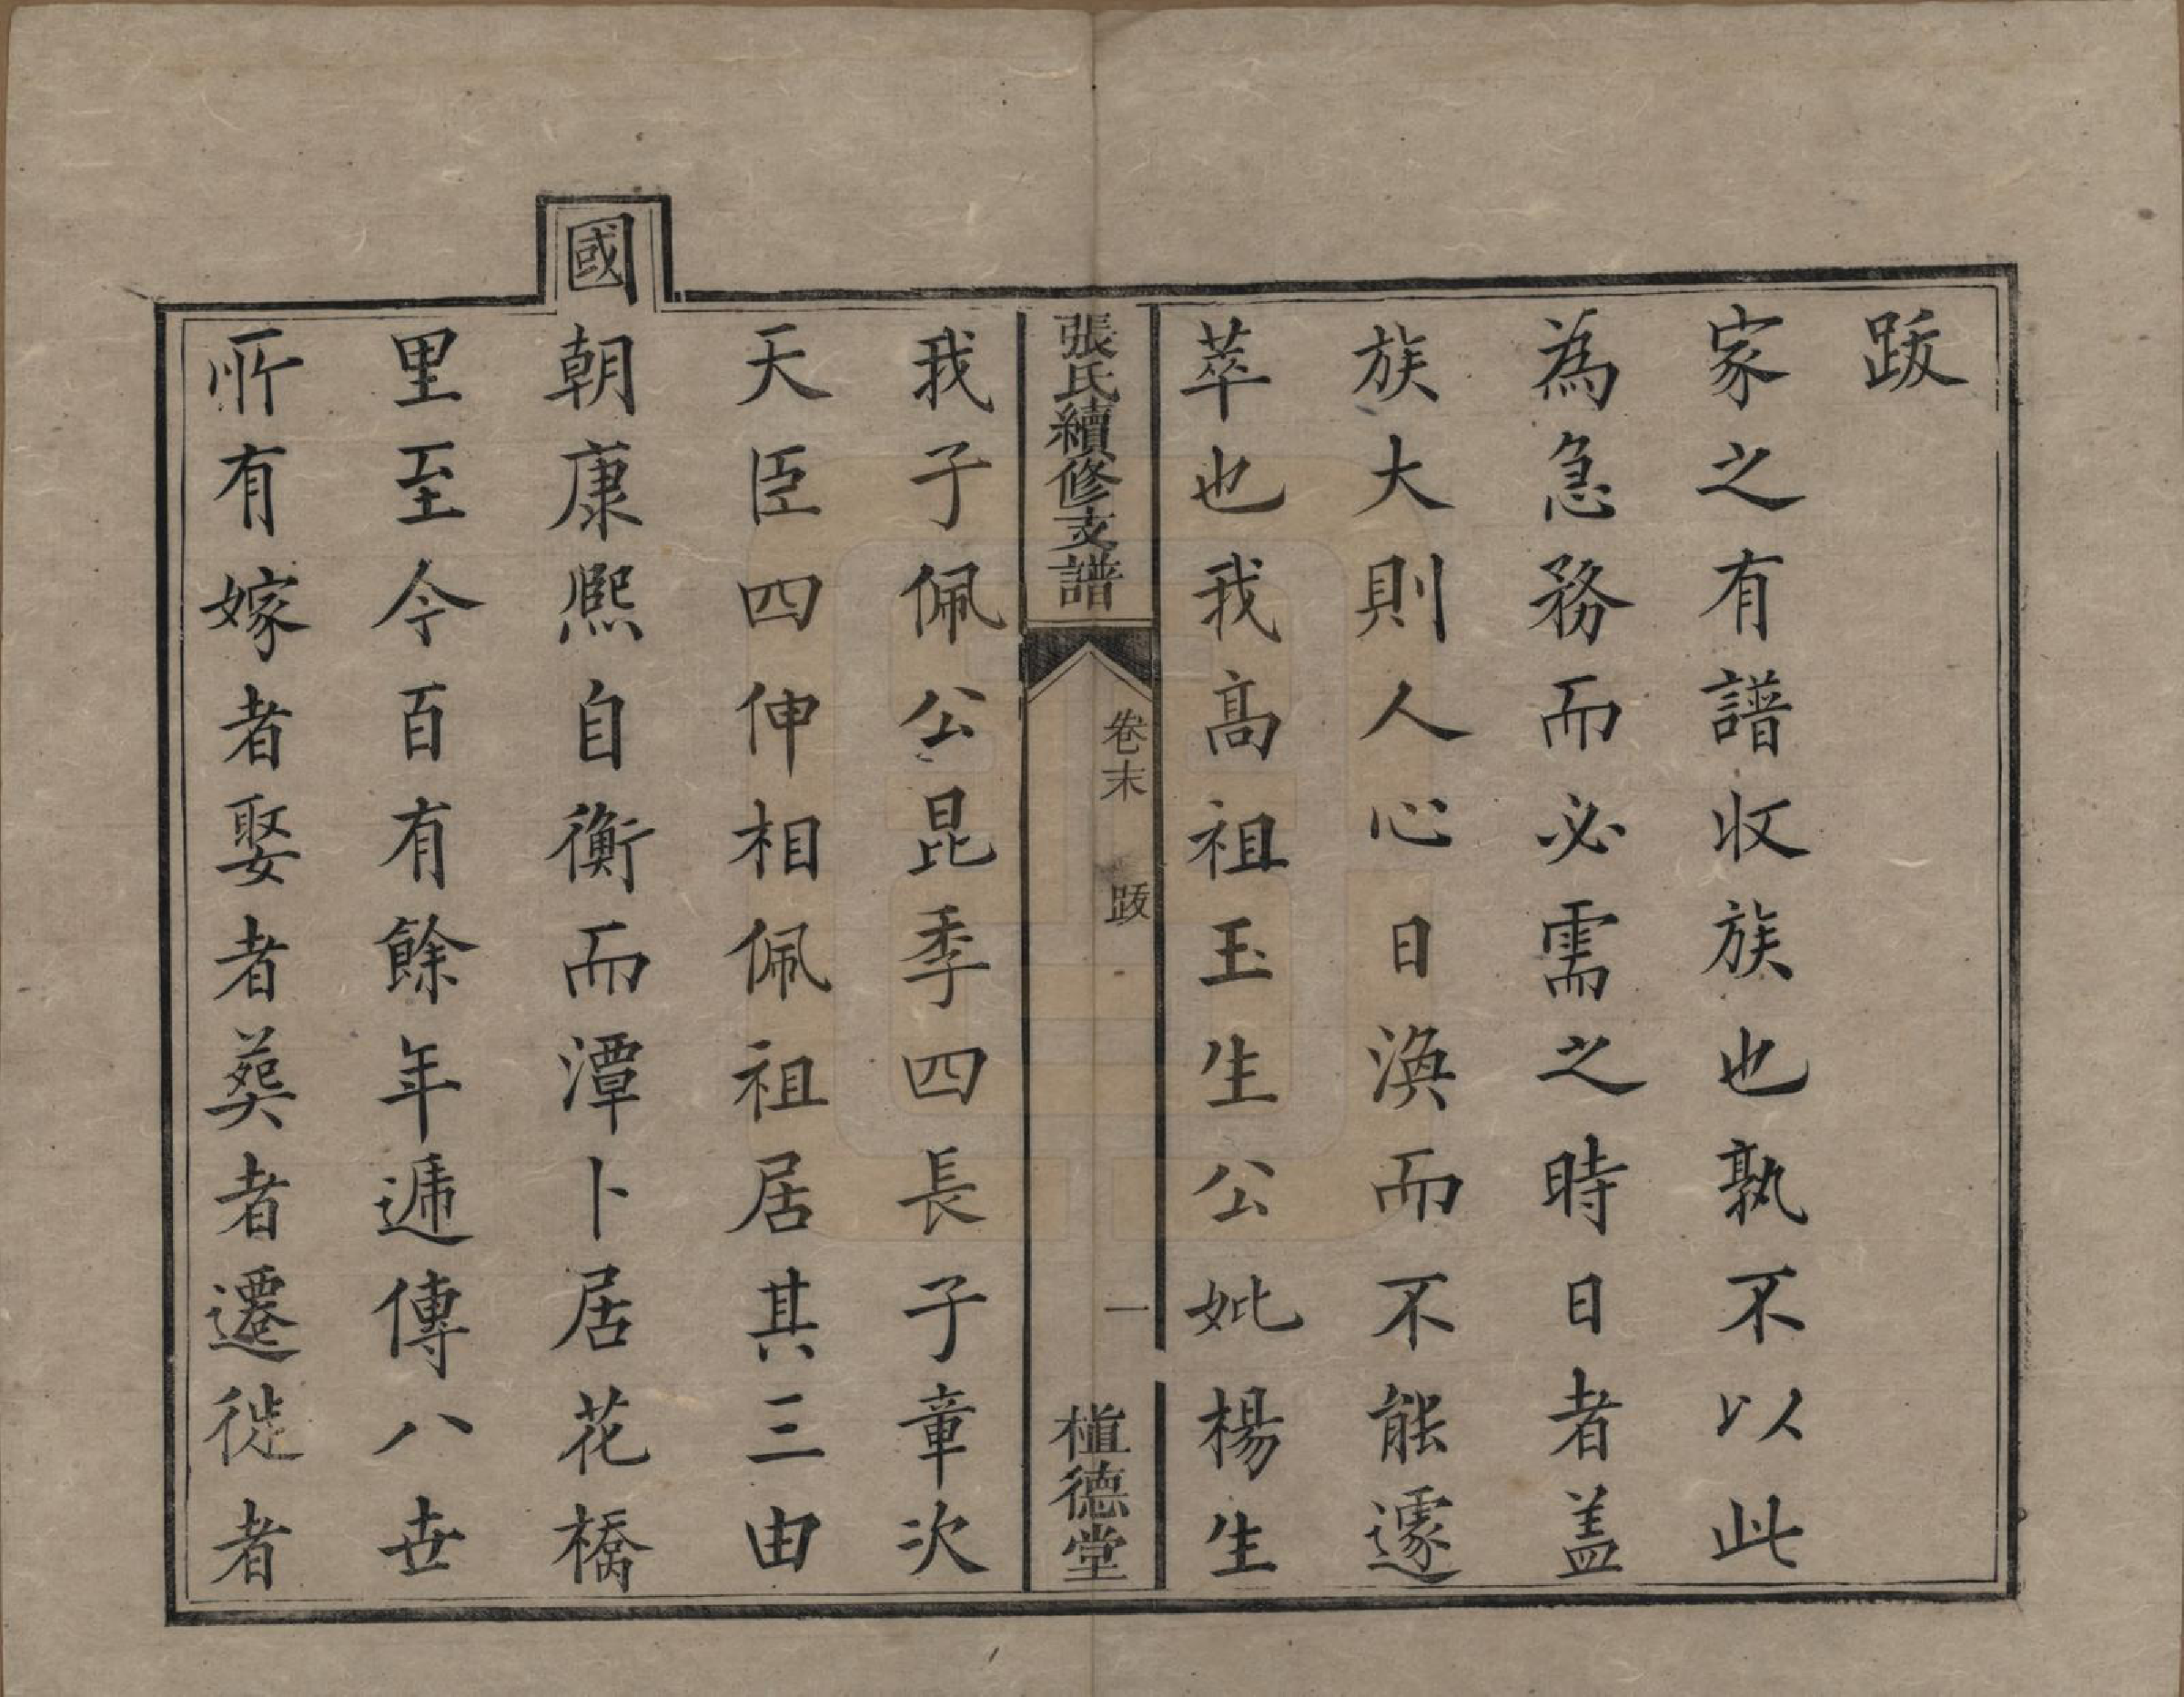 跋
家之有譜收族也孰不以此
為急務而必需之時日者盖
族大則人心日渙而不能遽
萃也我高祖玉生公妣楊生
張氏續修支譜
卷末
跋
一
植德堂
我子佩公昆季四長子章次
天臣四伸相佩祖居其三由
國朝康熙自衡而潭卜居花橋
里至今百有餘年遞傳八世
所有嫁者娶者葬者遷徙者